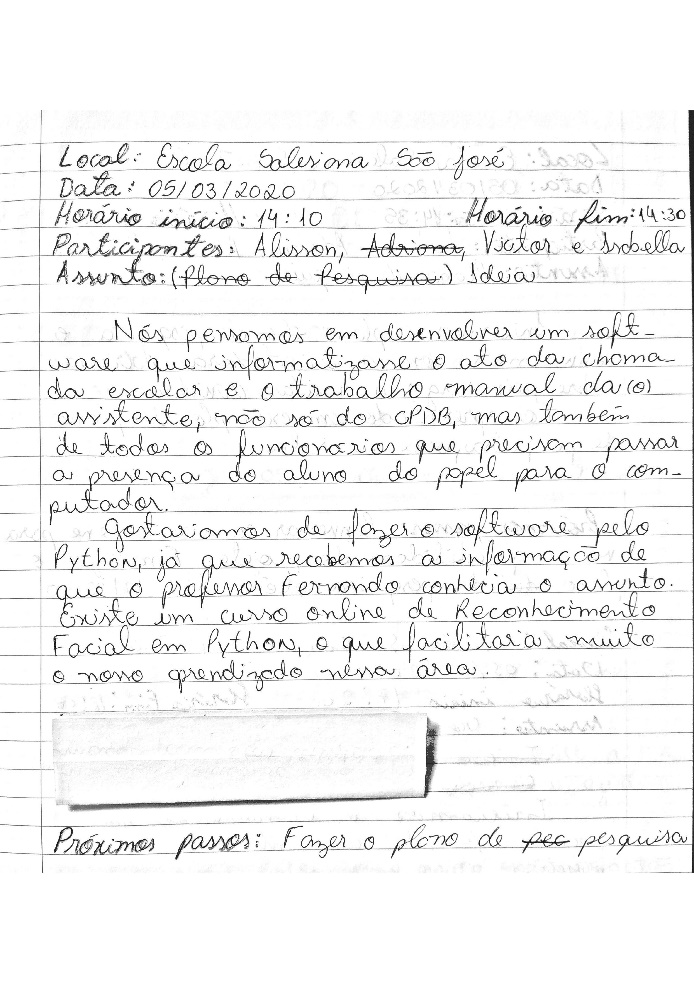 Local: Escola Salesiana São José
Data: 05/03/2020
Horário início: 14:10 Horário fim: 14:30
Participantes: Alisson, Adriana, Victor e Isabella
Assunto: (Plano de Pesquisa) Ideia
Nós pensamos em desenvolver um soft-
ware que informatizasse o ato da chama-
da escolar e o trabalho manual da(o)
assistente, não só do CPDB, mas também
de todos os funcionários que precisam passar
a presença do aluno do papel para o com-
putador.
Gostaríamos de fazer o software pelo
Python, já que recebemos a informação de
que o professor Fernando conhecia o assunto.
Existe um curso online de Reconhecimento
Facial em Python, o que facilitaria muito
o nosso aprendizado nessa área.
Próximos passos: Fazer o plano de pec pesquisa